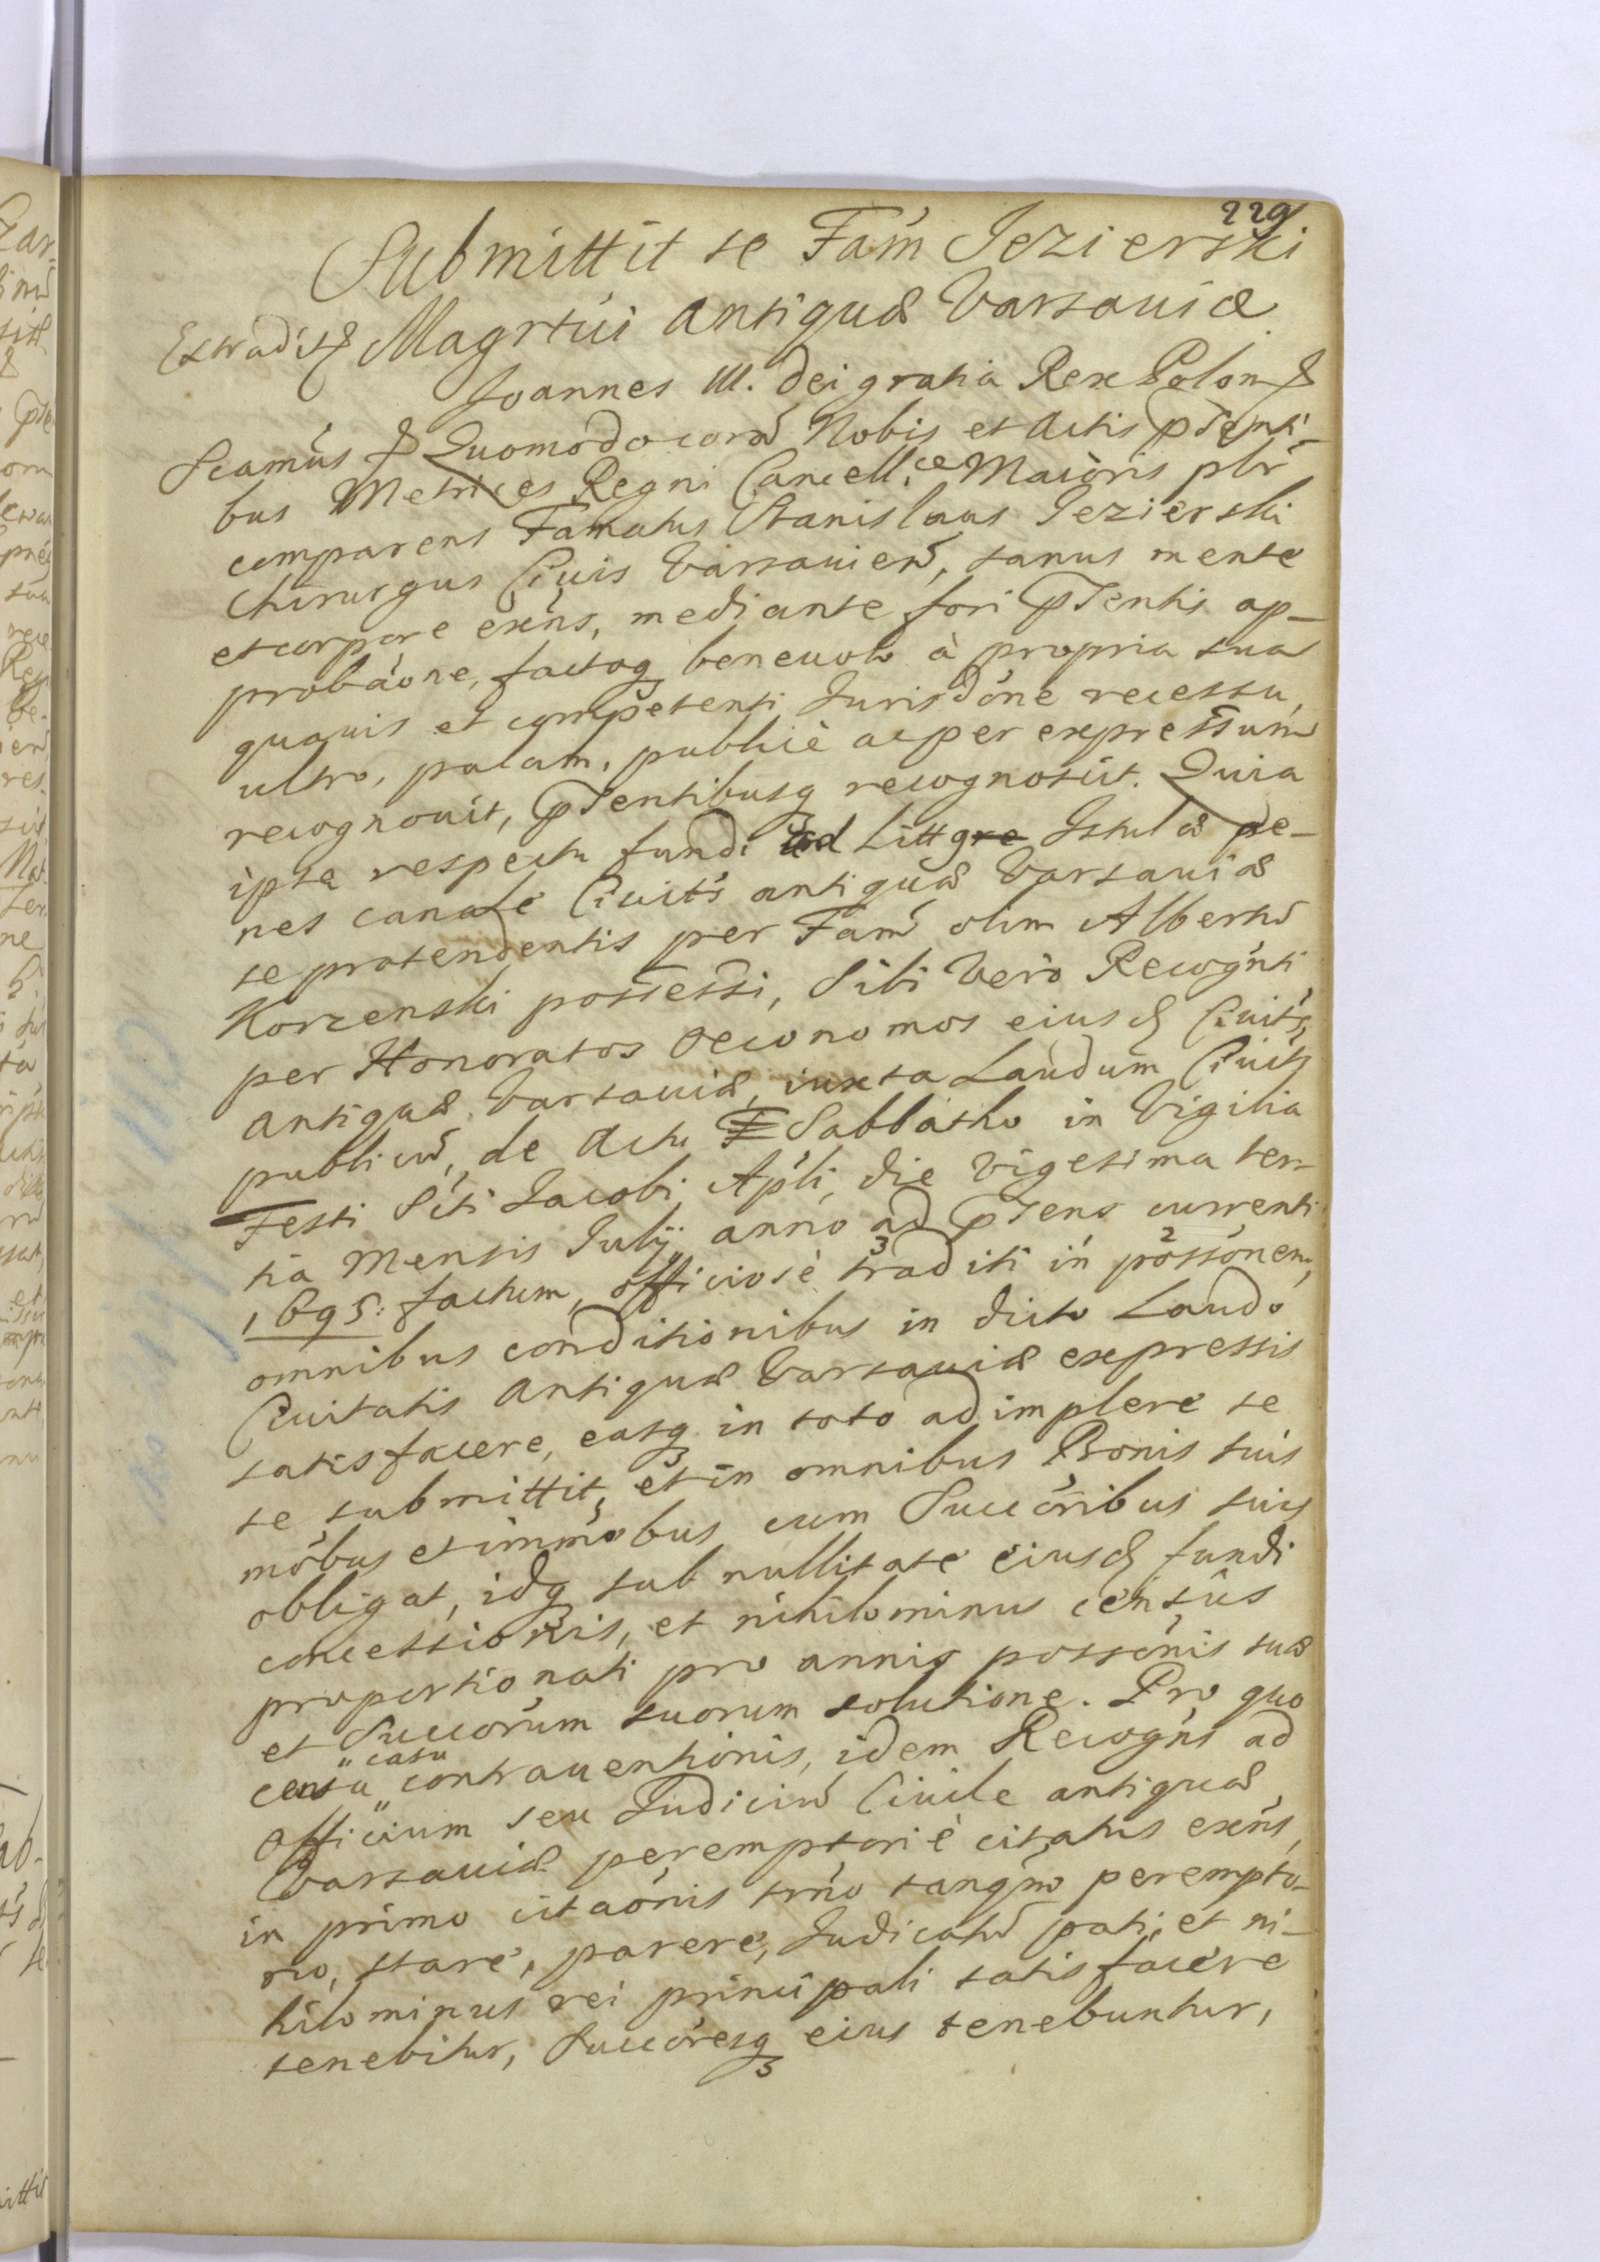 229
Submittit se Fam̃ Jezierski
Extradit Magrtui Antiquæ Varsaviæ
Joannes III. Dei gratia Rex Polon
Scamus Quomodo corã Nobis et Actis p̃senti-
bus Metrices Regni Cancell: Maioris pl̃r
comparens Famatus Stanislaus Jezierski
Chirurgus Civis Varsavien̄, sanus mente
et corpore exẽns, mediante fori p̃sentis ap-
probãone, factoq; benevolo à propria sua
quavis et competenti Jurisdõne recessu,
ultro, palam, publicè ac per expressum
recognovit, p̃sentibusq; recognoscit. Quia
ipse respectu fundi ad Litt Istulæ pe-
nes canale Civit̃s antiquæ Varsaviæ
se protendentis per Fam̃ olim Albertũ
Korzenski possessi, Sibi Vero Recogñti
per Honoratos Oeconomos eiusd Civit̃s
antiquæ Varsaviæ, iuxta Laudum Civit̃s
publicũ, de Actu Sabbatho in Vigilia
Festi Sc̃ti Jacobi Apl̃i, die vigesima ter-
tia Mensis Julij anno ad p̃sens currenti
1695: factum, officiosè traditi in possõnem,
omnibus conditionibus in dicto Laudo
Civitatis Antiquæ Varsaviæ expressis
satisfacere, easq; in toto adimplere se
se submittit, et in omnibus Bonis suis
mõbus et immõbus cum Succõribus suis
obligat, idq; sub nullitate eiusd fundi
concessionis, et nihilominus censûs
proportionati pro annis possõnis suæ
et Succõrum suorum solutione. Pro quo
censu casu contraventionis, idem Recogñs ad
Officium seu Judiciũ Civile antiquæ
Varsaviæ peremptoriè citatus exẽns,
in primo citaõnis trño tanq̃m perempto-
rio, stare, parere, Judicatũ pati, et ni-
hilominus rei principali satisfacere
tenebitur, Succõresq; eius tenebuntur,